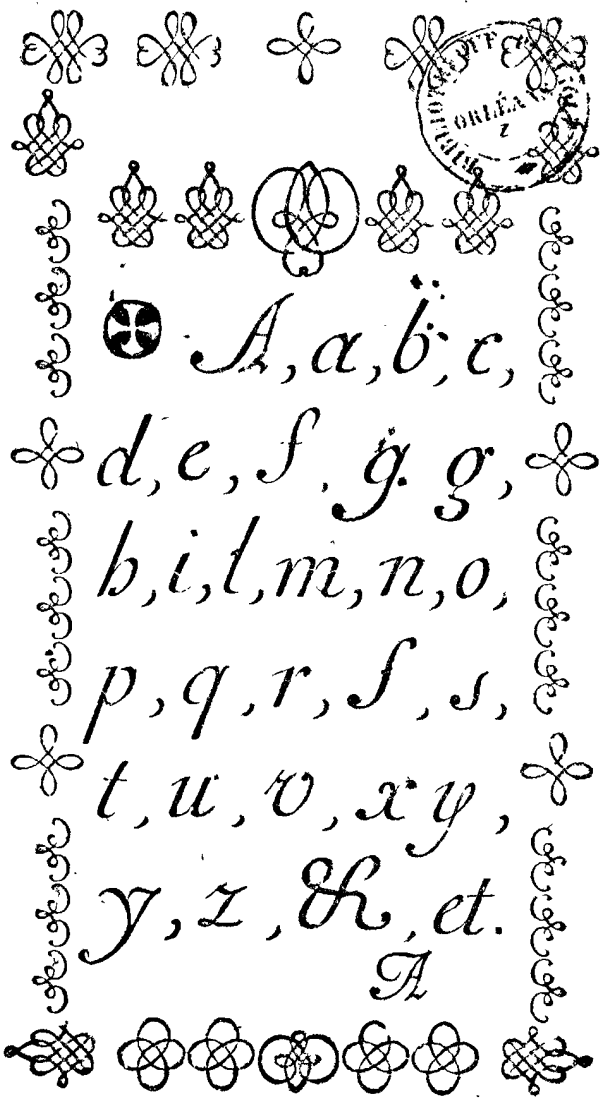 ORLÉANS
A, a, b, c,
d, e, f, g. g,
h, i, l, m, n, o,
p, q, r, ſ, s,
t, u, v, x y,
y, z, &, et.
A